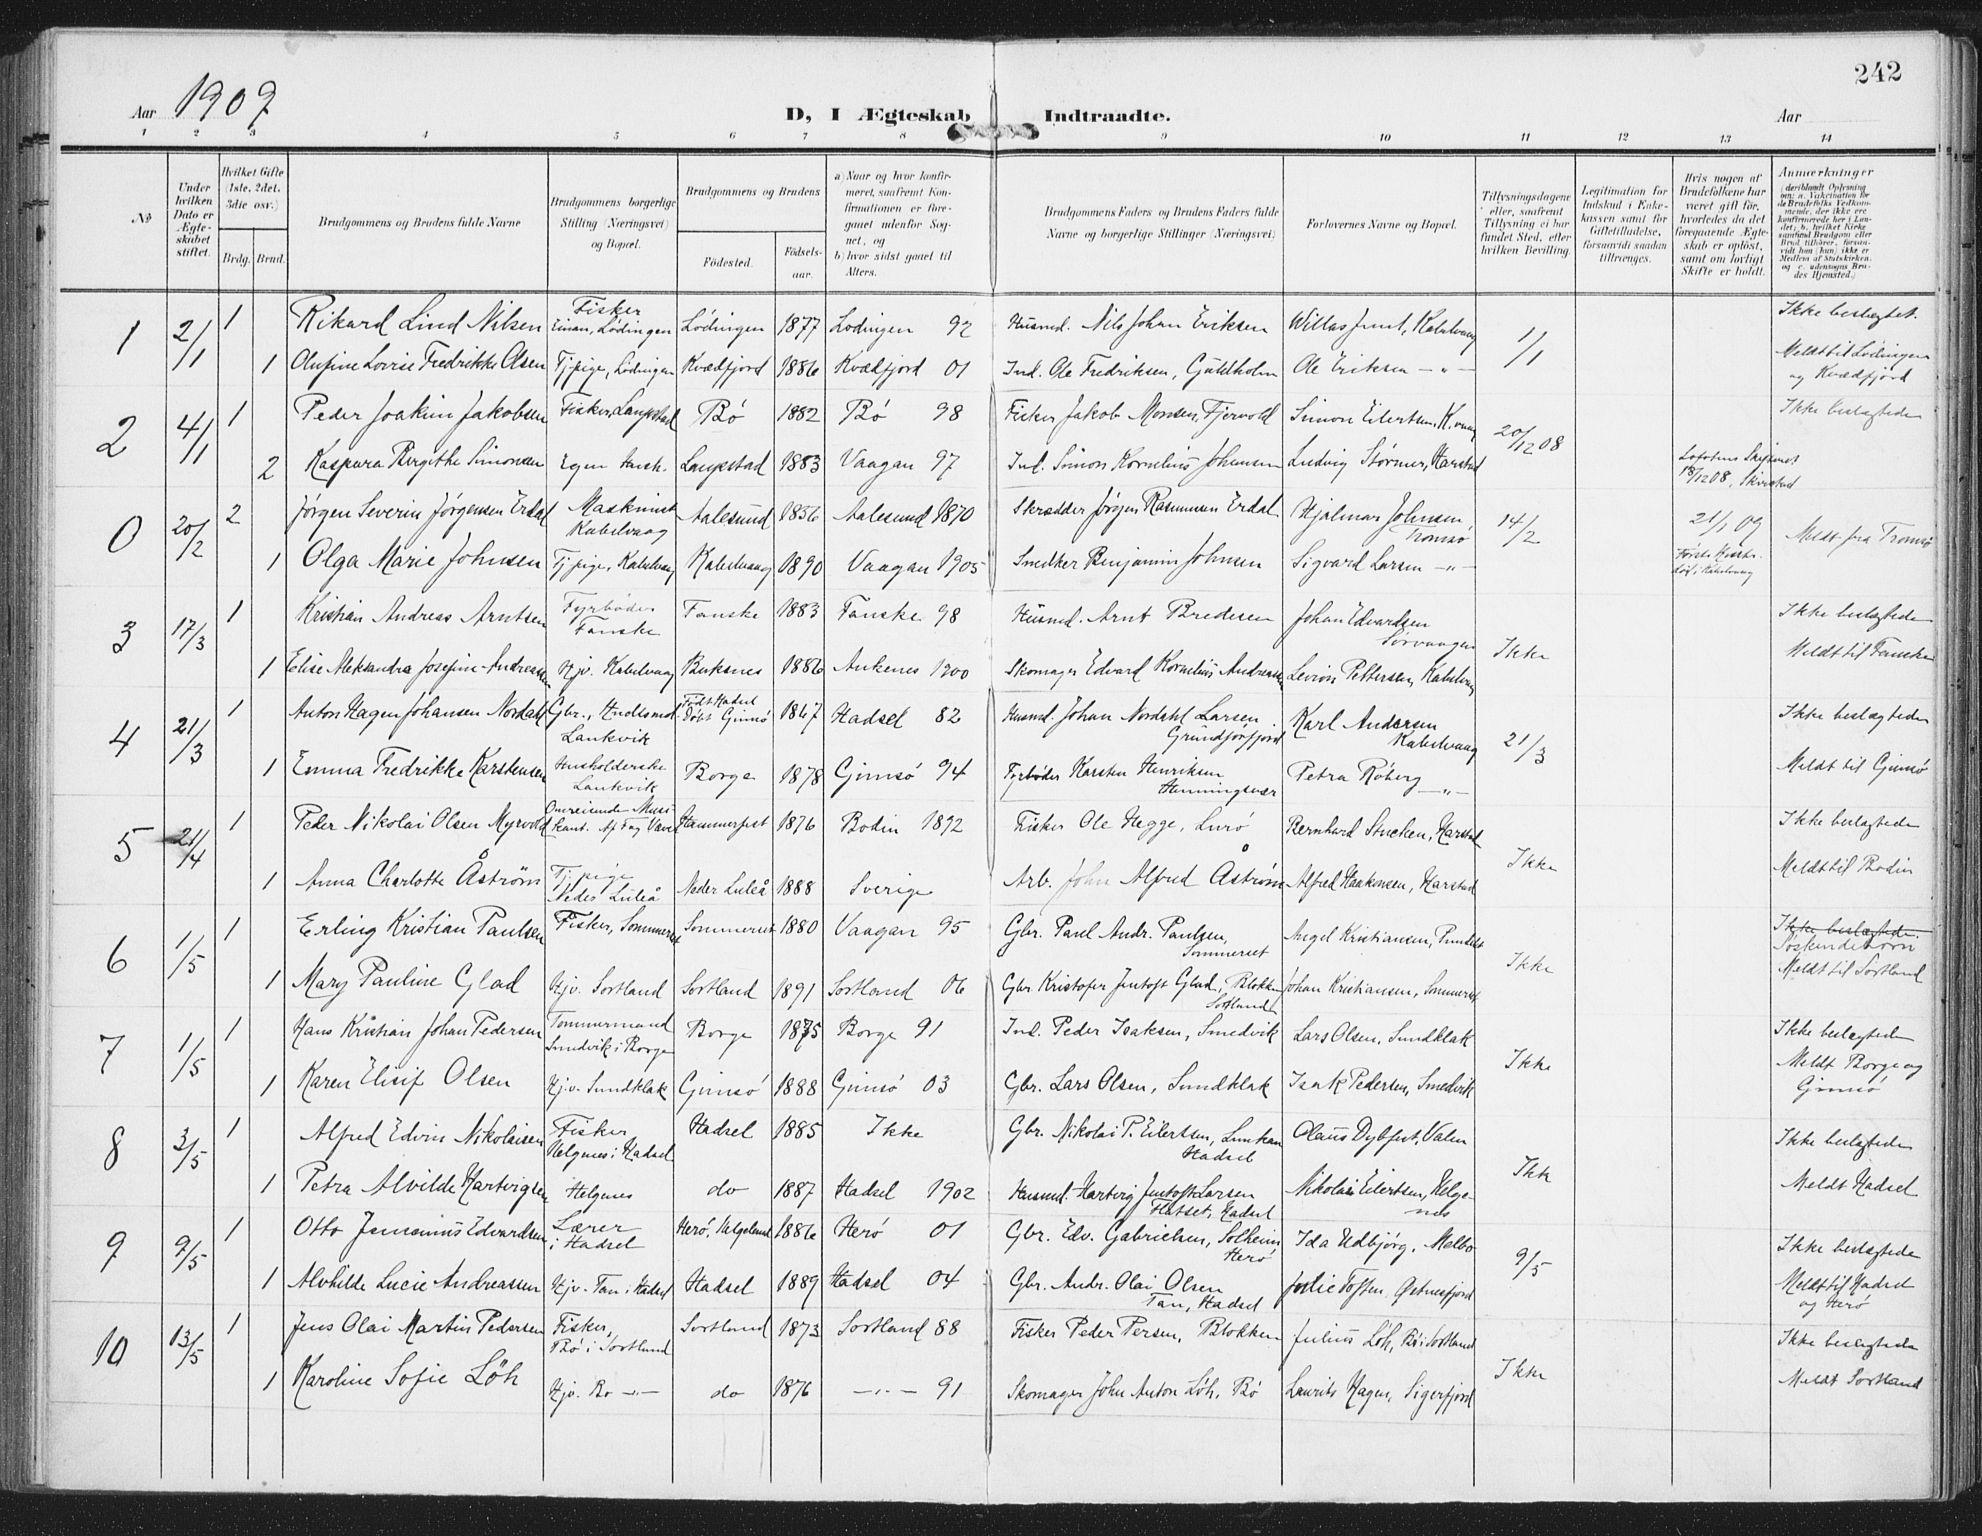 242
Aar 1909
D, I Ægteskab Indtraadte.
Aar
1 2 3 4 5 6 7 8 9 10 11 12 13 14
No
Under hvilken Dato er Ægteskabet stiftet.
Hvilket Gifte (1ste, 2det, 3die osv.)
Brdg. Brud.
Brudgommens og Brudens fulde Navne
Brudgommens borgerlige Stilling (Næringsvei) og Bopæl.
Brudgommens og Brudens
Fødested.
Fødselsaar.
a) Naar og hvor konfirmeret, saafremt Konfirmationen er foregaaet udenfor Sognet, og
b) hvor sidst gaaet til Alters.
Brudgommens Faders og Brudens Faders fulde Navne og borgerlige Stillinger (Næringsvei)
Forlovernes Navne og Bopæl.
Tillysningsdagene eller, saafremt Tillysning ei har fundet Sted, efter hvilken Bevilling.
Legitimation for Indskud i Enkekassen samt for Giftetilladelse, forsaavidt saadan tiltrænges.
Hvis nogen af Brudefolkene har været gift før, hvorledes da det foregaaende Ægteskab er opløst, samt om lovligt Skifte er holdt.
Anmærkninger
1 2/1 1 Rikard Lind Nilsen Fisker Lødingen Lødingen 1877 Lødingen 92 Husmd. Nils Johan Eriksen Kabelvaag 1/1 Ikke beslægtet.
1 Olufine Lovise Fredrikke Olsen Tj.pige, Lødingen Kvædfjord 1886 Kvædfjord 01 Ind. Ole Fredriksen, Guldholm Ole Eriksen —"— Meldt til Lødingen og Kvædfjord
2 4/1 1 Peder Joakim Jakobsen Fisker, Laupstad Bø 1882 Bø 98 Fisker Jakob Monsen, Fjervold Simon Eilertsen, K.vaag 20/12 08 Ikke beslægtede
2 Kaspara Bergithe Simonsen Egen Hush. Laupstad 1883 Vaagan 97 Ind. Simon Kornelius Johansen Ludvig Størmer, Harstad Lofotens 18/12 08,
0 20/2 2 Jørgen Severin Jørgensen Erdal Maskinist Kabelvaag Aalesund 1856 Aalesund 1870 Skrædder Jørgen Rasmussen Erdal Hjalmar Johnsen, Tromsø 14/2 21/1 09 Meldt fra Tromsø
1 Olga Marie Johnsen Tj.pige, Kabelvaag Kabelvaag 1890 Vaagan 1905 Smedker Benjamin Johnsen Sigvard Larsen —"— Første Kabelvaag
3 17/3 1 Kristian Andreas Arntsen Fyrbøder Fauske Fauske 1883 Fauske 98 Husmd. Arnt Bredesen Johan Edvardsen Sørvaagen Ikke Ikke beslægtede
1 Elise Aleksandra Josefine Andreassen Hjv. Kabelvaag Buksnes 1886 Ankenes 1900 Skomager Edvard Kornelius Andreassen Levion Pettersen, Kabelvaag Meldt til Fauske
4 21/3 1 Anton Hagen Johansen Nordahl Gbr., Hndlsmd. Laukvik Født Hadsel Døbt Gimsø 1867 Hadsel 82 Husmd. Johan Nordahl Larsen Grundforfjord Karl Andersen Kabelvaag 21/3 Ikke beslægtede
1 Emma Fredrikke Karstensen Husholderske Laukvik Borge 1878 Gimsø 94 Fyrbøder Karsten Henriksen Henningsvær Petra Røberg —"— Meldt til Gimsø
5 21/4 1 Peder Nikolai Olsen Myrvold Omreisende Musikant. Af Fag Væver Hammerfest 1876 Bodin 1892 Fisker Ole Hegge, Lurø Bernhard Stucken, Harstad Ikke Ikke beslægtede
1 Anna Charlotte Åström Tj.pige Neder Luleå Neder Luleå 1888 Sverige Arb. John Alfred Åström Alfred Haakonsen, Harstad Meldt til Bodin
6 1/5 1 Erling Kristian Paulsen Fisker, Sommerset Sommerset 1880 Vaagan 95 Gbr. Paul Andr. Paulsen, Sommerset Angel Kristiansen, Ikke Ikke beslægtede. Søskendebørn
1 Mary Pauline Glad Hjv. Sortland Sortland 1891 Sortland 06 Gbr Kristofer Jentoft Glad, Blokken Sortland Johan Kristiansen, Sommerset Meldt til Sortland
7 1/5 1 Hans Kristian Johan Pedersen Tømmermand Smedvik i Borge Borge 1875 Borge 91 Ind. Peder Isaksen, Smedvik Lars Olsen, Sundklak Ikke Ikke beslægtede
1 Karen Elisif Olsen Hjv. Sundklak Gimsø 1888 Gimsø 03 Gbr. Lars Olsen, Sundklak Isak Pedersen, Smedvik Meldt Borge og Gimsø
8 3/5 1 Alfred Edvin Nikolaisen Fisker Helgenes i Hadsel Hadsel 1885 Ikke Gbr. Nikolai P. Eilertsen, Hadsel Olaus Dybfest, Valen Ikke Ikke beslægtede
1 Petra Alvilde Hartvigsen Helgenes do 1887 Hadsel 1902 Husmd. Hartvig Jentoft Larsen Hadsel Nikolai Eilertsen, Helgenes Meldt Hadsel
9 9/5 1 Otto Jenanius Edvardsen Lærer i Hadsel Herø, Helgeland 1886 Herø 01 Gbr. Edv. Gabrielsen, Solheim Herø Ida Udbjørg, Melbo 9/5 Ikke beslægtede
1 Alvhilde Lucie Andreassen Hjv. Tan i Hadsel Hadsel 1889 Hadsel 04 Gbr. Andr. Olai Olsen Tan, Hadsel Julie Toften, Østnesfjord Meldt til Hadsel og Herø
10 13/5 1 Jens Olai Martin Pedersen Fisker, Bø i Sortland Sortland 1873 Sortland 88 Fisker Peder Persen, Blokken Julius Löh, Bø i Sortland Ikke Ikke beslægtede
1 Karoline Sofie Löh Hjv. Bø —"— do 1876 —"— 91 Skomager John Anton Löh, Bø Laurits Hagen, Sigerfjord Meldt Sortland